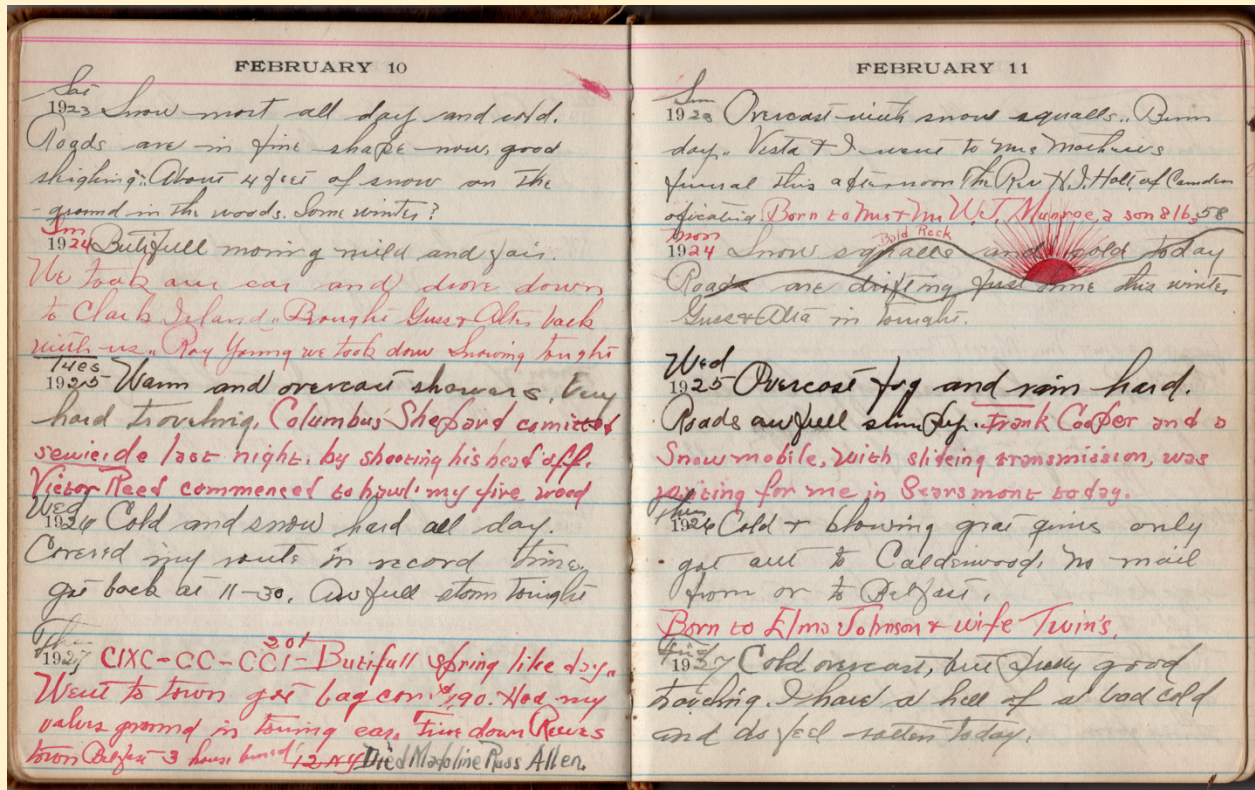 FEBRUARY 10
Sat
1923 Snow most all day and cold.
Roads are in fine shape now, good
sleighing.. About 4 feet of snow on the
ground in the woods. Some winter?
Sun
1924 Butifull moring mild and fair.
We took our car and drove down
to Clark Island.. Brought Guss & Alta back
with us.. Roy Young we took down Snowing tonight
Tues
1925 Warm and overcast showers, Very
hard traveling, Columbus Shepard comitted
sewicide last night. by shooting his head off.
Victor Reed commenced to hawl my fire wood
Wed
1926 Cold and snow hard all day.
Covered my route in record time,
got back at 11-30. Awfull storm tonight
Thur
201
1927 CIXC-CC-CCI-Butifull spring like day..
Went to town got bag corn 1.90. Had my
valves ground in touring car. Fire down
town Belfast 3 house burned 12 Died Madoline Russ Allen.
FEBRUARY 11
Sun
1923 Overcast with snow squalls.. Bum
day.. Vesta & I went to Mrs Mathews
funeral this afternoon The Rev N.J. Holt of Camden
oficating Born to Mrs & Mr W.J. Munroe, a son 8 lb, 58
Mon
Bald Rock
1924 Snow squalls and cold today
Roads are drifting first time this winter
Guss & Alta in tonight.
Wed
1925 Overcast fog and rain hard.
Roads awfull slumpy. Frank Cooper and a
Snowmobile, with slideing transmission, was
waiting for me in Searsmont today.
Thur
1926 Cold & blowing grat guns only
got out to Calderwood, no mail
from or to Belfast.
Born to Elmo Johnson & wife Twin's.
Frid
1927 Cold overcast, but pretty good
traveling. I have a hell of a bad cold
and do feel rotten today.